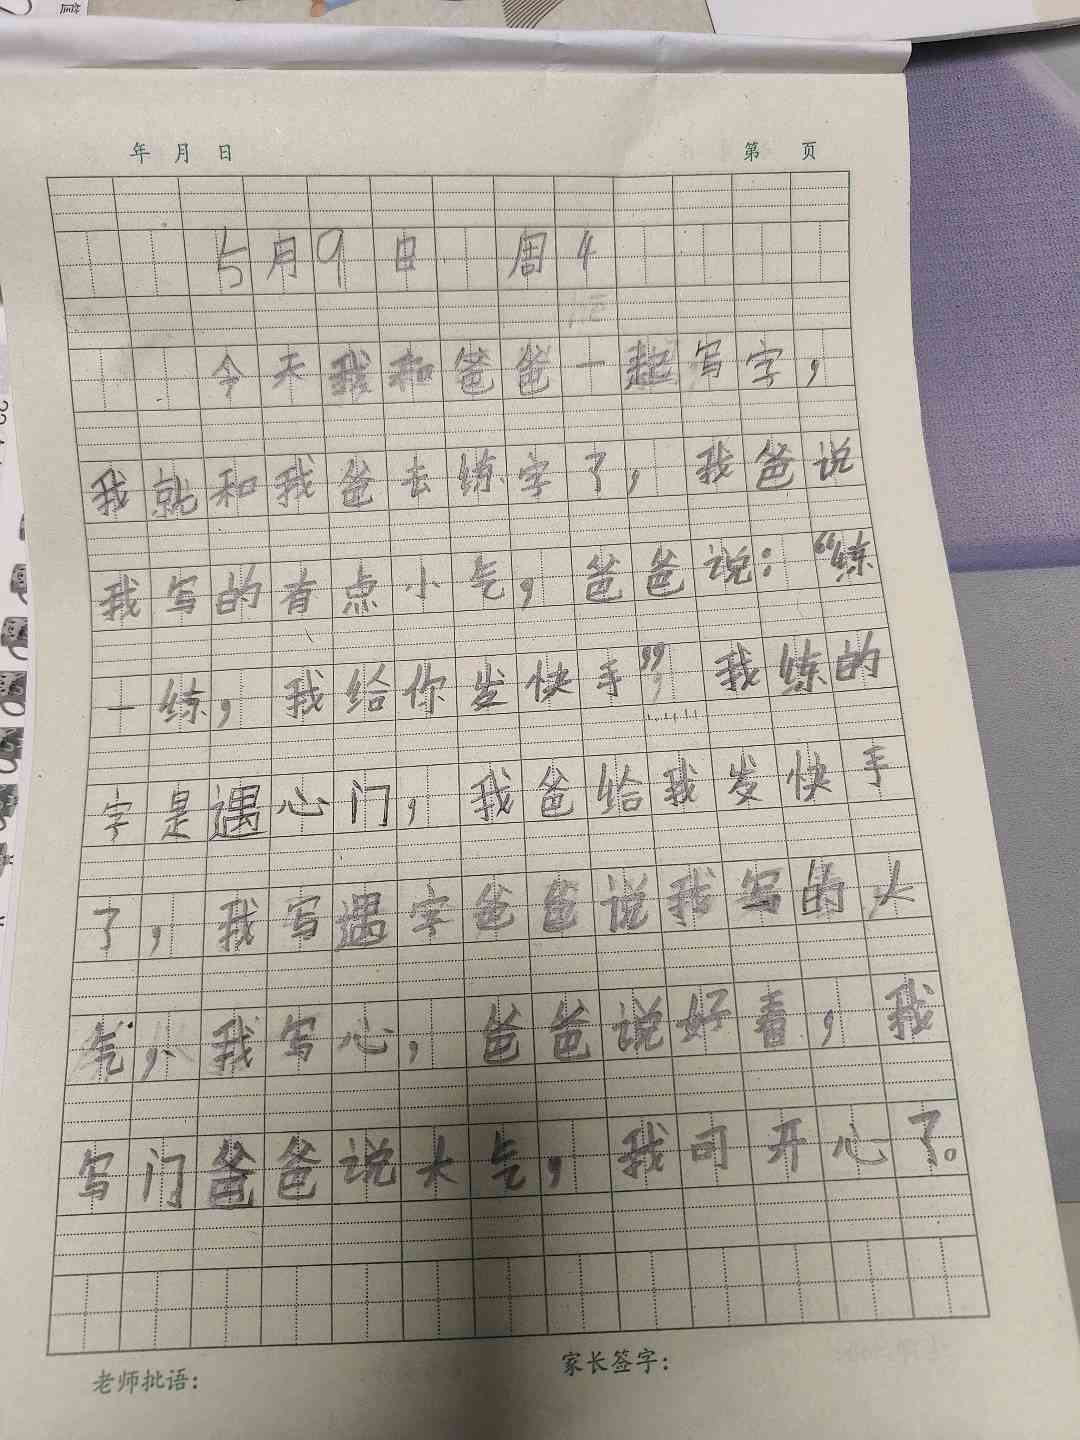 年 月 日 第 页
5月9日 周4
今天我和爸爸一起写字，
我就和我爸去练字了，我爸说
我写的有点小气，爸爸说：“练
一练，我给你发快手”，我练的
字是遇心门，我爸给我发快手
了，我写遇字爸爸说我写的大
气，我写心，爸爸说好看，我
写门爸爸说大气，我可开心了。
老师批语： 家长签字：